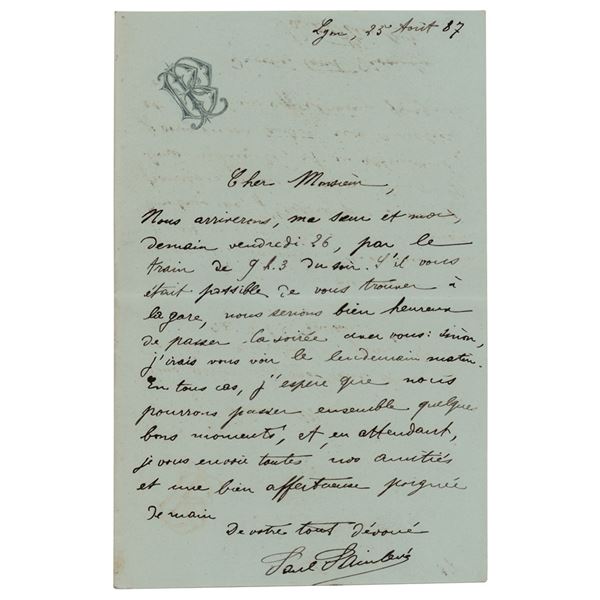 Lyon, 25 Août 87
Cher Monsieur,
Nous arriverons, ma sœur et moi,
demain vendredi 26, par le
train de 9 h. 3 du soir. S'il vous
était possible de vous trouver à
la gare, nous serions bien heureux
de passer la soirée avec vous : sinon,
j'irais vous voir le lendemain matin.
En tous cas, j'espère que nous
pourrons passer ensemble quelques
bons moments, et, en attendant,
je vous envoie toutes nos amitiés
et une bien affectueuse poignée
de main
De votre tout dévoué
Paul